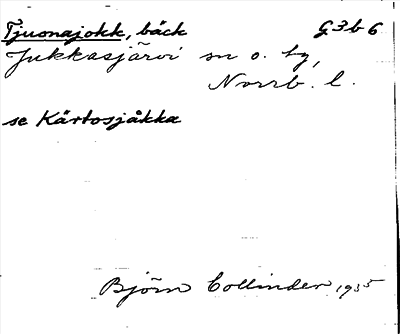 Tjuonajokk, bäck G3b6
Jukkasjärvi sn o. tg,
Norrb. l.
se Kärtosjåkka
Björn Collinder 1935